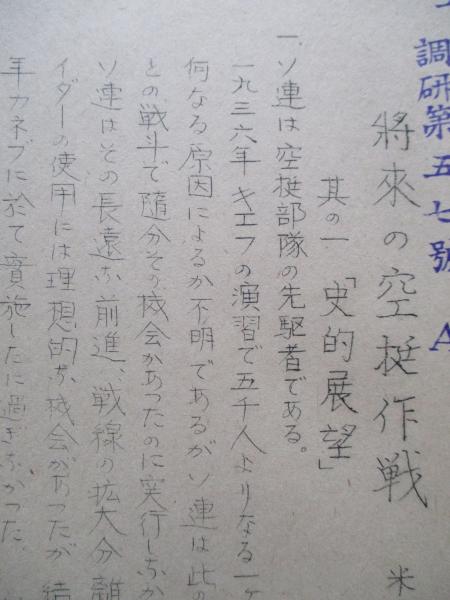 調研第五七號 A
將來の空挺作戦 米
其の一「史的展望」
一、ソ連は空挺部隊の先駆者である。
一九三六年キエフの演習で五千人よりなる一ヶ
何なる原因によるか不明であるがソ連は此の
との戦斗で随分その機会があつたのに実行しなか
ソ連はその長遠な前進、戦線の拡大分離
イダーの使用には理想的な機会があつたが 結
年カネブに於て實施したに過ぎなかつた。